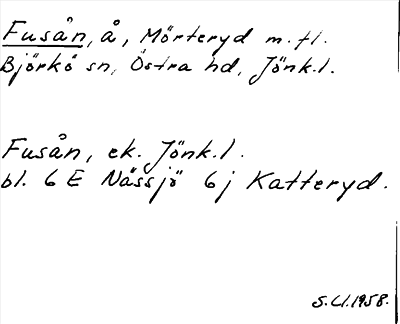 Fusån, å, Mörteryd m.fl.
Björkö sn, Östra hd, Jönk.l.
Fusån, ek. Jönk.l.
bl. 6 E Nässjö 6 j Katteryd.
S.U.1958.